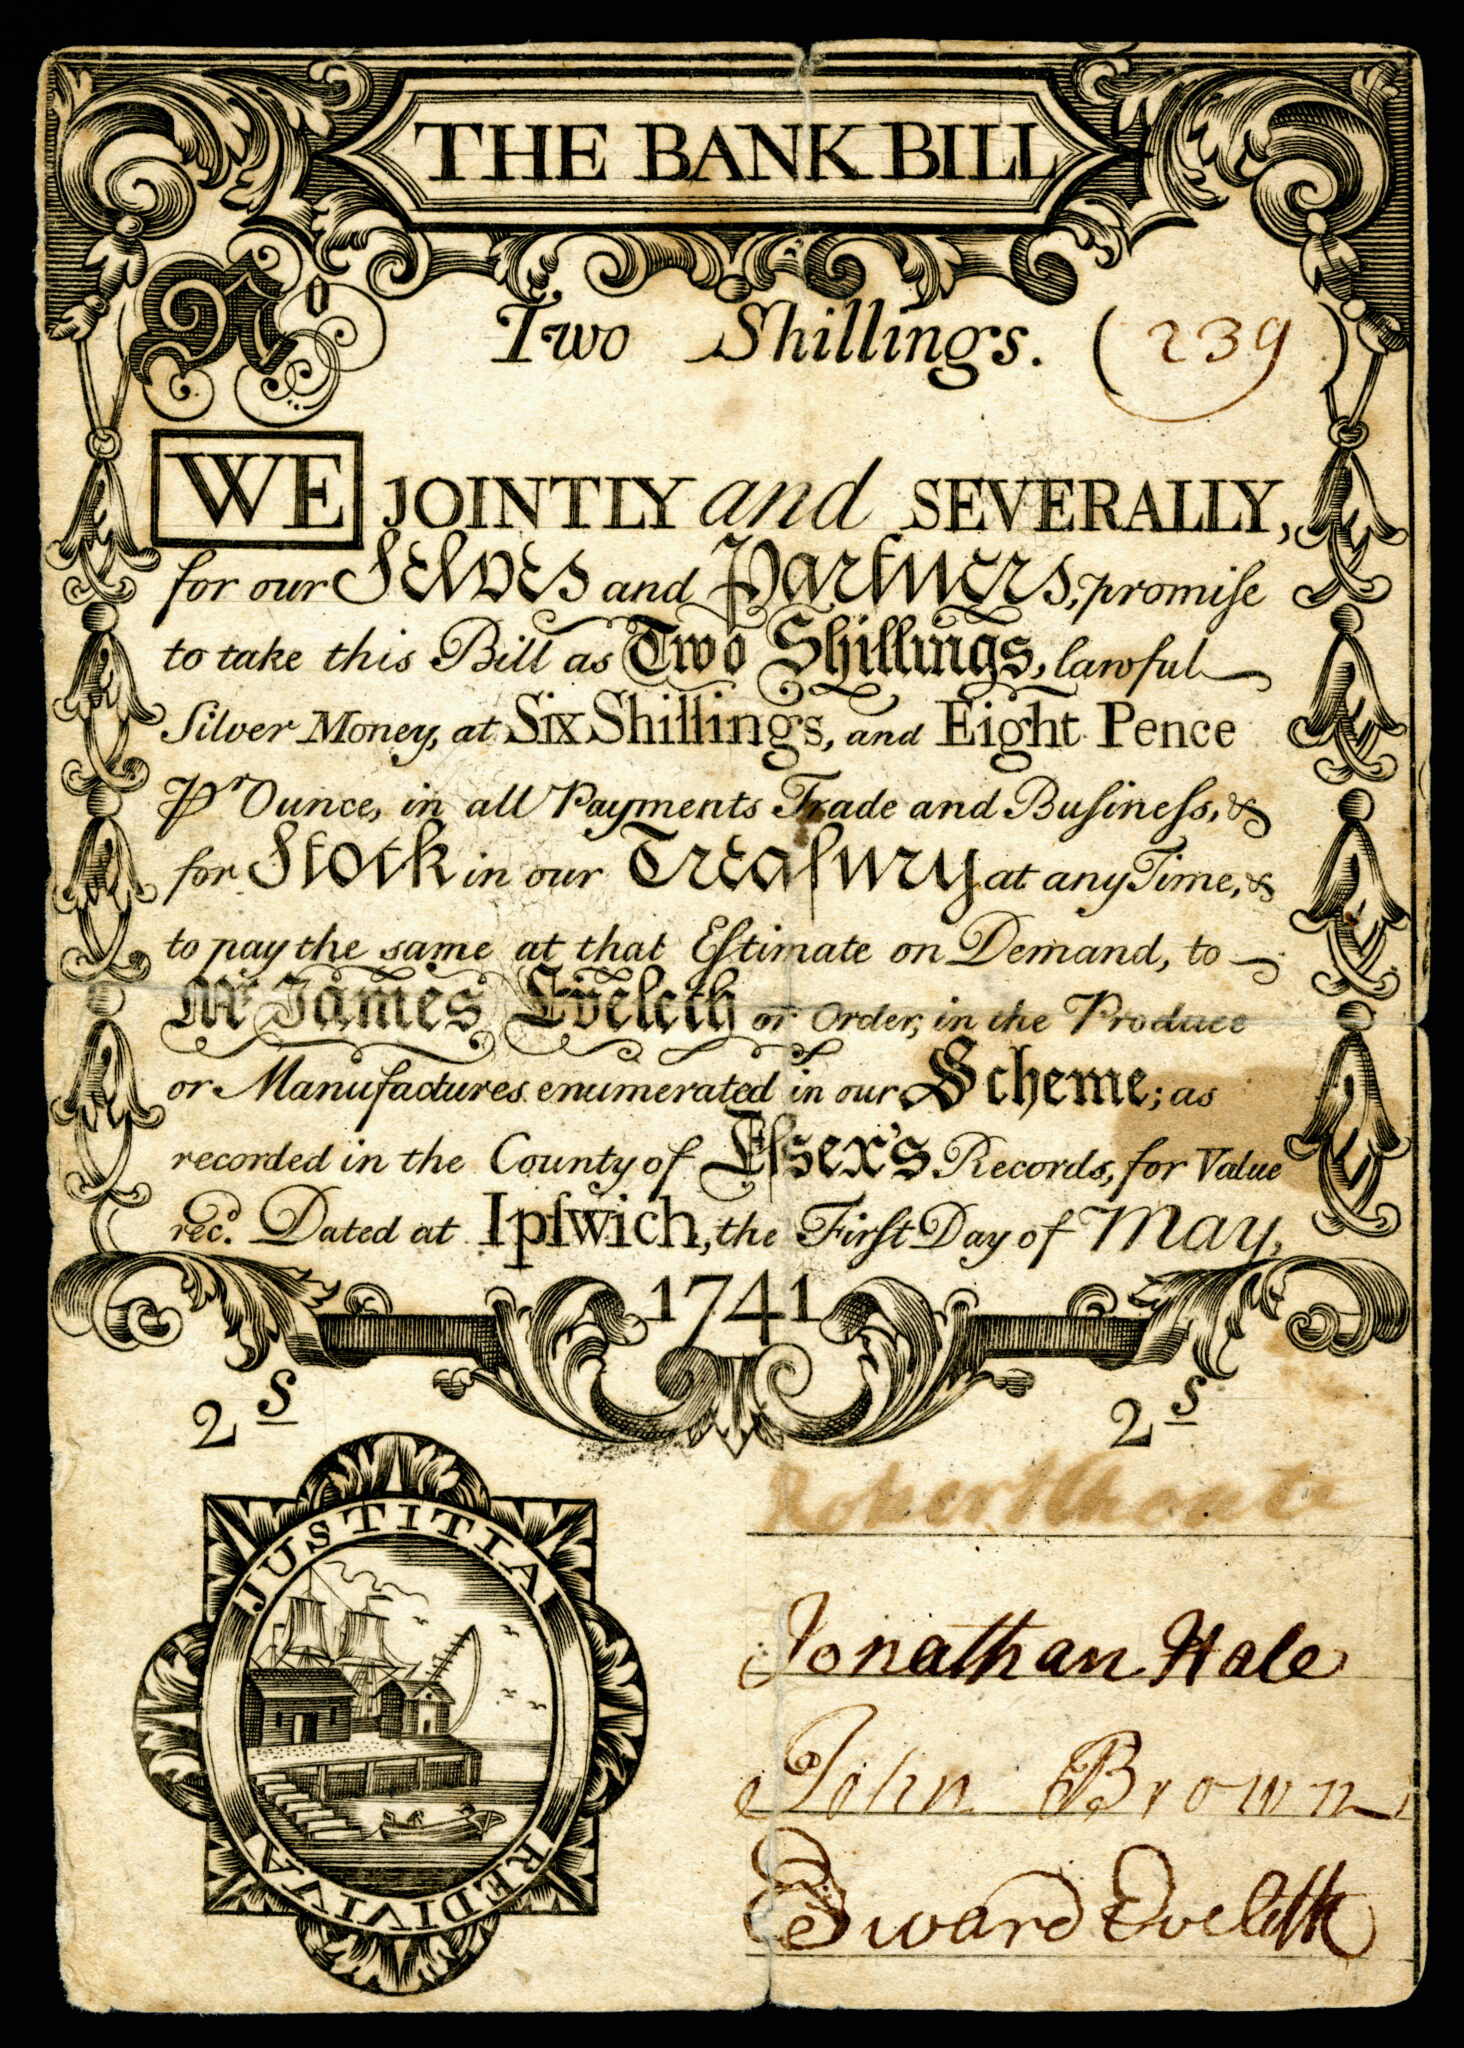 THE BANK BILL
No Two Shillings. (239)
WE JOINTLY and SEVERALLY,
for our Selves and Partners, promiſe
to take this Bill as Two Shillings, lawful
Silver Money, at Six Shillings, and Eight Pence
Pr Ounce, in all Payments Trade and Buſineſs, &
for Stock in our Treaſury at any Time, &
to pay the same at that Eſtimate on Demand, to
Mr James Eveleth or Order, in the Produce
or Manufactures enumerated in our Scheme; as
recorded in the County of Eſsex's Records, for Value
recd. Dated at Ipſwich, the Firſt Day of May,
1741
2s 2s
JUSTITIA
REDIVIVA
Robert Choate
Jonathan Hale
John Brown
Edward Eveleth